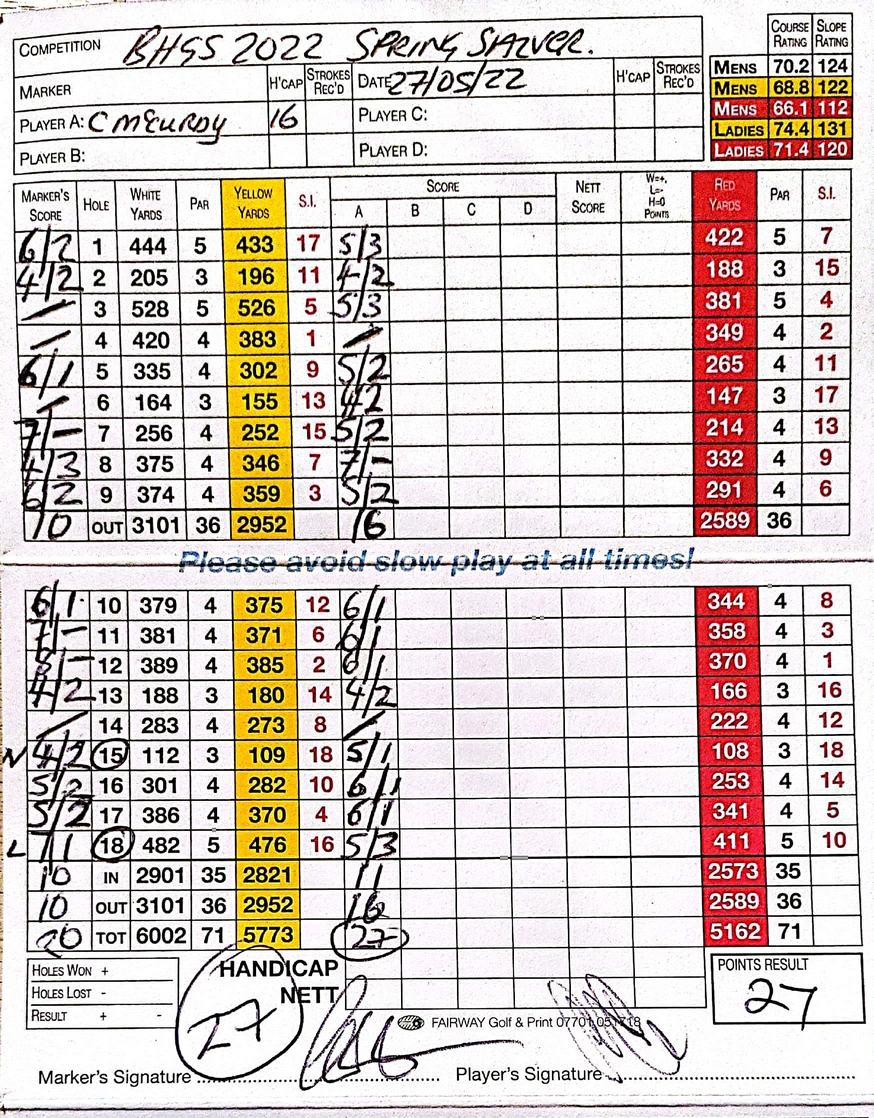 COMPETITION BHGS 2022 SPRING SALVER.
COURSE RATING SLOPE RATING
MENS 70.2 124
MENS 68.8 122
MENS 66.1 112
LADIES 74.4 131
LADIES 71.4 120
MARKER H'CAP STROKES REC'D DATE 27/05/22 H'CAP STROKES REC'D
PLAYER A: C McELROY 16 PLAYER C:
PLAYER B: PLAYER D:
MARKER'S SCORE HOLE WHITE YARDS PAR YELLOW YARDS S.I. SCORE A B C D NETT SCORE W=+, L=- H=0 POINTS RED YARDS PAR S.I.
6/2 1 444 5 433 17 5/3 422 5 7
4/2 2 205 3 196 11 4/2 188 3 15
/ 3 528 5 526 5 5/3 381 5 4
/ 4 420 4 383 1 / 349 4 2
6/1 5 335 4 302 9 5/2 265 4 11
/ 6 164 3 155 13 4/2 147 3 17
7/- 7 256 4 252 15 5/2 214 4 13
4/3 8 375 4 346 7 7/- 332 4 9
6/2 9 374 4 359 3 5/2 291 4 6
10 OUT 3101 36 2952 16 2589 36
Please avoid slow play at all times!
6/1 10 379 4 375 12 6/1 344 4 8
7/- 11 381 4 371 6 6/1 358 4 3
8/- 12 389 4 385 2 6/1 370 4 1
4/2 13 188 3 180 14 4/2 166 3 16
/ 14 283 4 273 8 / 222 4 12
N 4/2 15 112 3 109 18 5/1 108 3 18
5/2 16 301 4 282 10 6/1 253 4 14
5/2 17 386 4 370 4 6/1 341 4 5
L 7/1 18 482 5 476 16 5/3 411 5 10
10 IN 2901 35 2821 11 2573 35
10 OUT 3101 36 2952 16 2589 36
20 TOT 6002 71 5773 27 5162 71
HOLES WON +
HOLES LOST -
RESULT + -
HANDICAP
NETT
27
POINTS RESULT
27
FAIRWAY Golf & Print 07701 051718
Marker's Signature Player's Signature